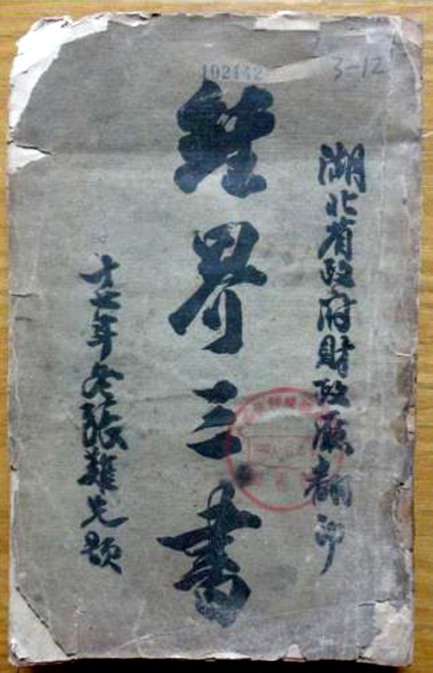 3-12
湖北省政府財政廳翻印
經界三書
十七年冬張難先題